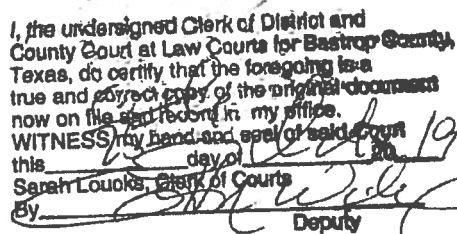 I, the undersigned Clerk of District and
County Court at Law Courts for Bastrop County,
Texas, do certify that the foregoing is a
true and correct copy of the original document
now on file and record in my office.
WITNESS my hand and seal of said Court
this day of 20 19
Sarah Loucks, Clerk of Courts
By
Deputy